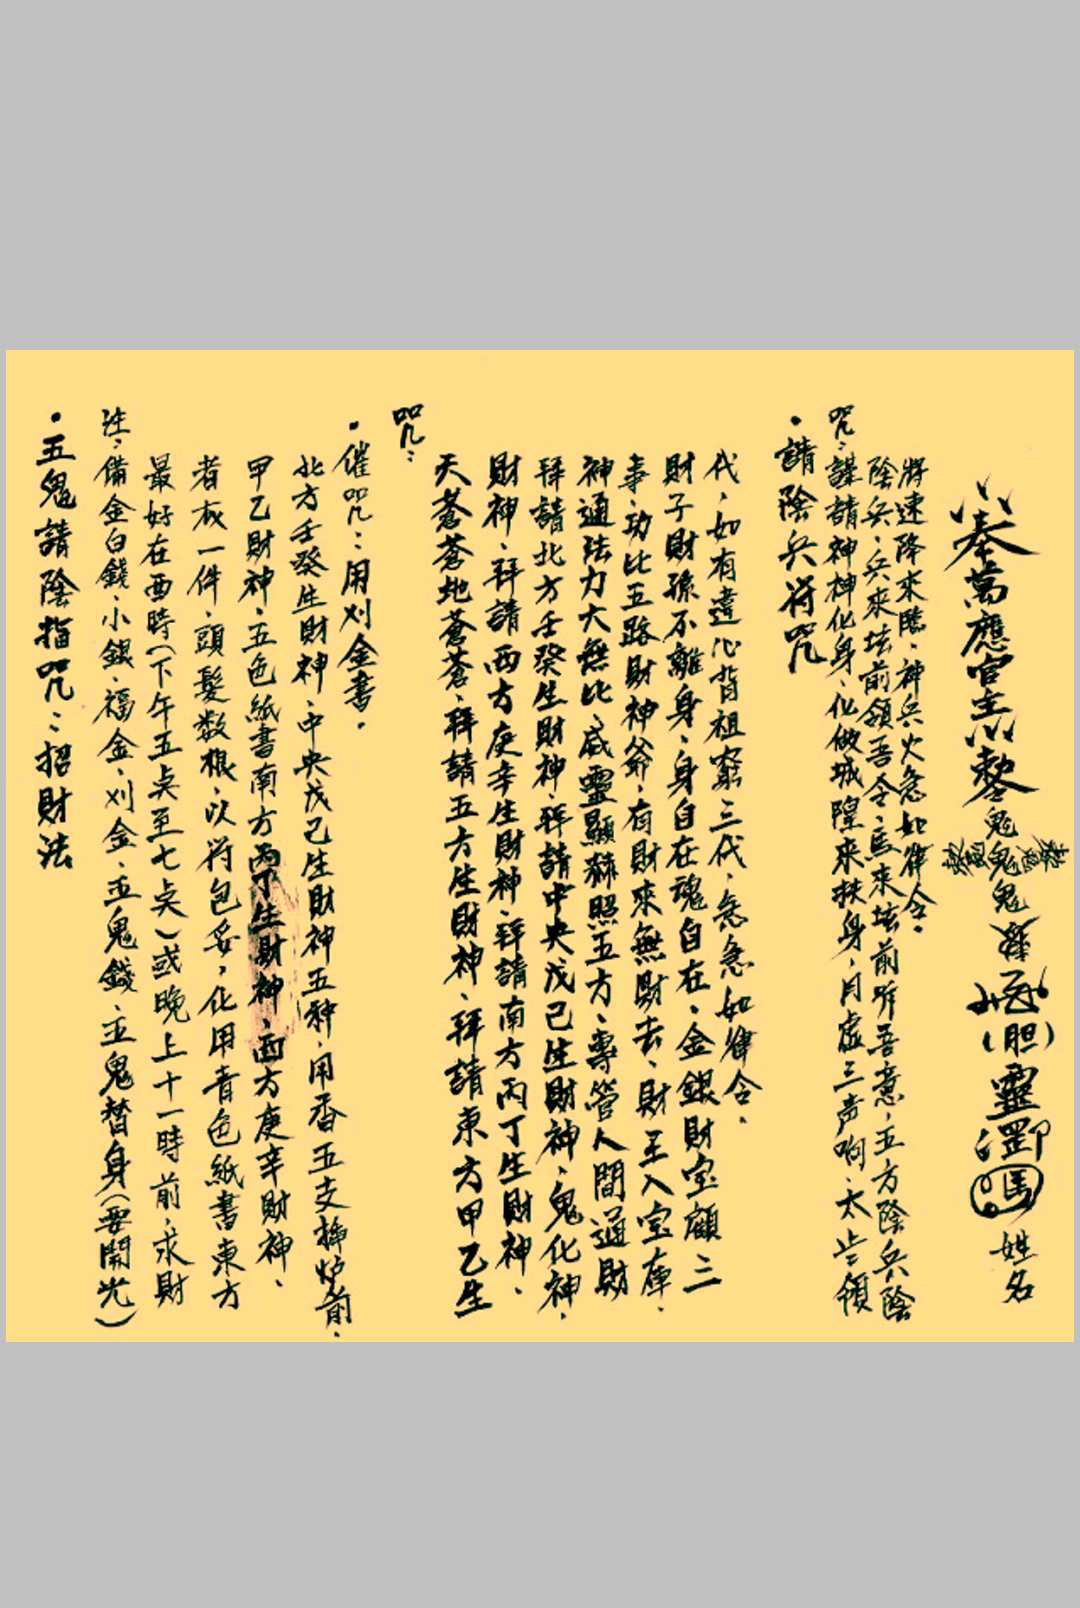 •五鬼請陰指咒：招財法
注：備金白錢、小銀、福金、刈金、五鬼錢、五鬼替身（要開光）
最好在酉時（下午五点至七点）或晚上十一時前，求財
者衣一件，頭髮数根，以符包妥，化用青色紙書東方
甲乙財神，五色紙書南方丙丁生財神，西方庚辛財神、
北方壬癸生財神，中央戊己生財神五种，用香五支插炉前，
•催咒：用刈金書。
咒：
天蒼蒼地蒼蒼，拜請五方生財神、拜請東方甲乙生
財神、拜請西方庚辛生財神、拜請南方丙丁生財神、
拜請北方壬癸生財神、拜請中央戊己生財神、鬼化神，
神通法力大無比，威靈顯赫照五方，專管人間通財
事，功比五路財神爺，有財來無財去，財王入宝庫，
財子財孫不離身，身自在魂自在，金銀財宝顧三
代，如有違心背祖窮三代，急急如律令。
•請陰兵符咒
咒：謹請神神化身，化做城隍來扶身，月虛三声响，太歲領
陰兵，兵來坛前領吾令，馬來坛前听吾意，五方陰兵陰
將速降來臨，神兵火急如律令。
奉萬應官主 鬼鬼鬼 （胆）靈 馬 姓名